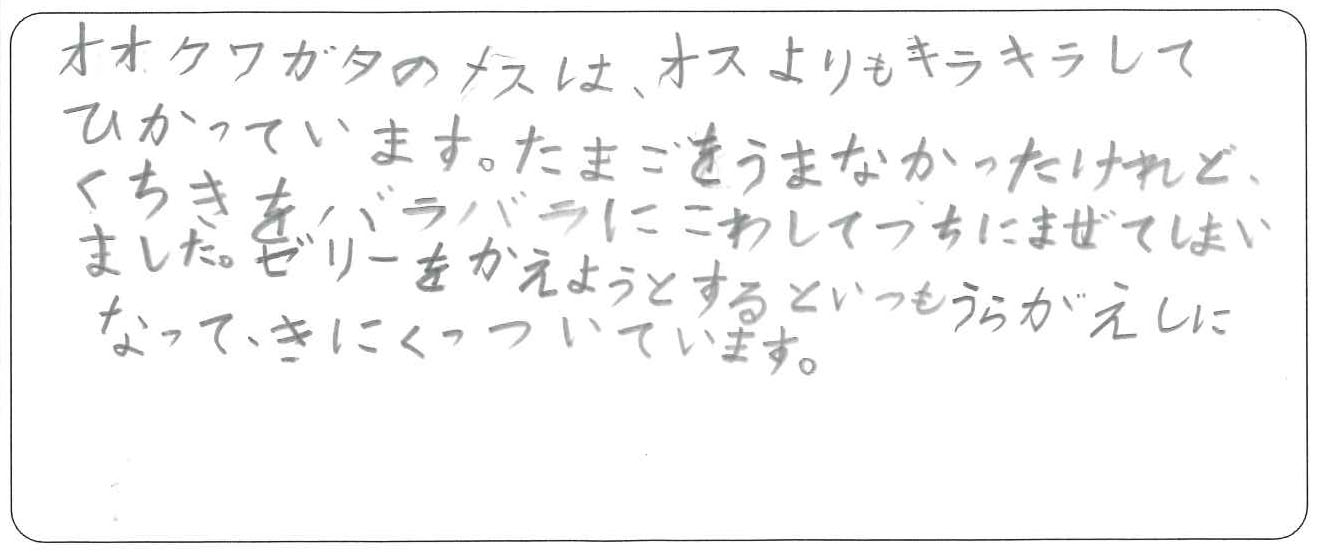 オオクワガタのメスは、オスよりもキラキラして
ひかっています。たまごをうまなかったけれど、
くちきをバラバラにこわしてつちにまぜてしまい
ました。ゼリーをかえようとするといつもうらがえしに
なって、きにくっついています。